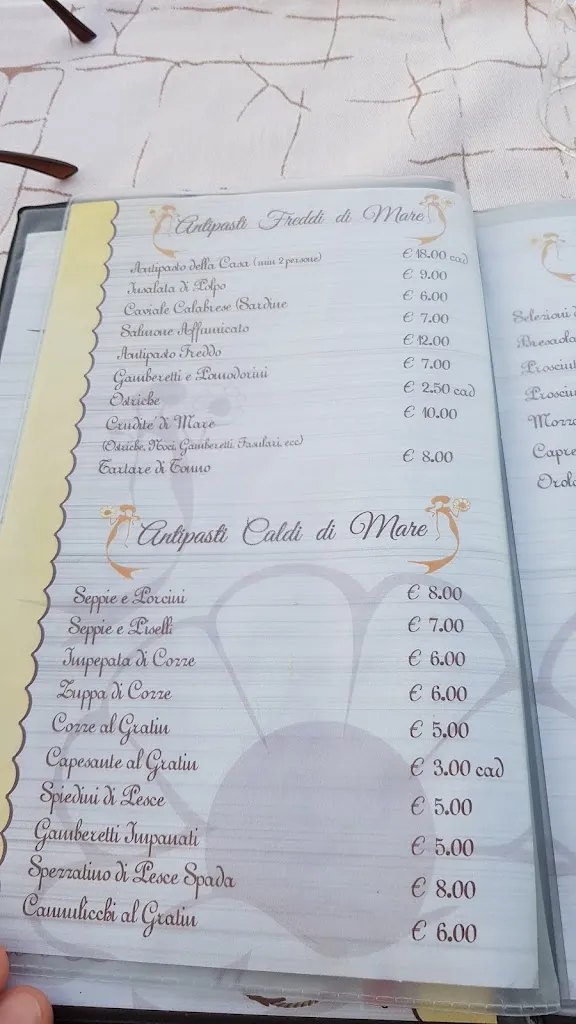 Antipasti Freddi di Mare
Antipasto della Casa (min 2 persone) € 18.00 cad
Insalata di Polpo € 9.00
Caviale Calabrese (Sardine € 6.00
Salmone Affumicato € 7.00
Antipasto Freddo € 12.00
Gamberetti e Pomodorini € 7.00
Ostriche € 2.50 cad
Crudite' di Mare € 10.00
(Ostriche, Noci, Gamberetti, Fasulari, ecc)
Tartare di Tonno € 8.00
Antipasti Caldi di Mare
Seppie e Porcini € 8.00
Seppie e Piselli € 7.00
Impepata di Cozze € 6.00
Zuppa di Cozze € 6.00
Cozze al Gratin € 5.00
Capesante al Gratin € 3.00 cad
Spiedini di Pesce € 5.00
Gamberetti Impanati € 5.00
Spezzatino di Pesce Spada € 8.00
Cannulicchi al Gratin € 6.00
Selezioni
Bresaola